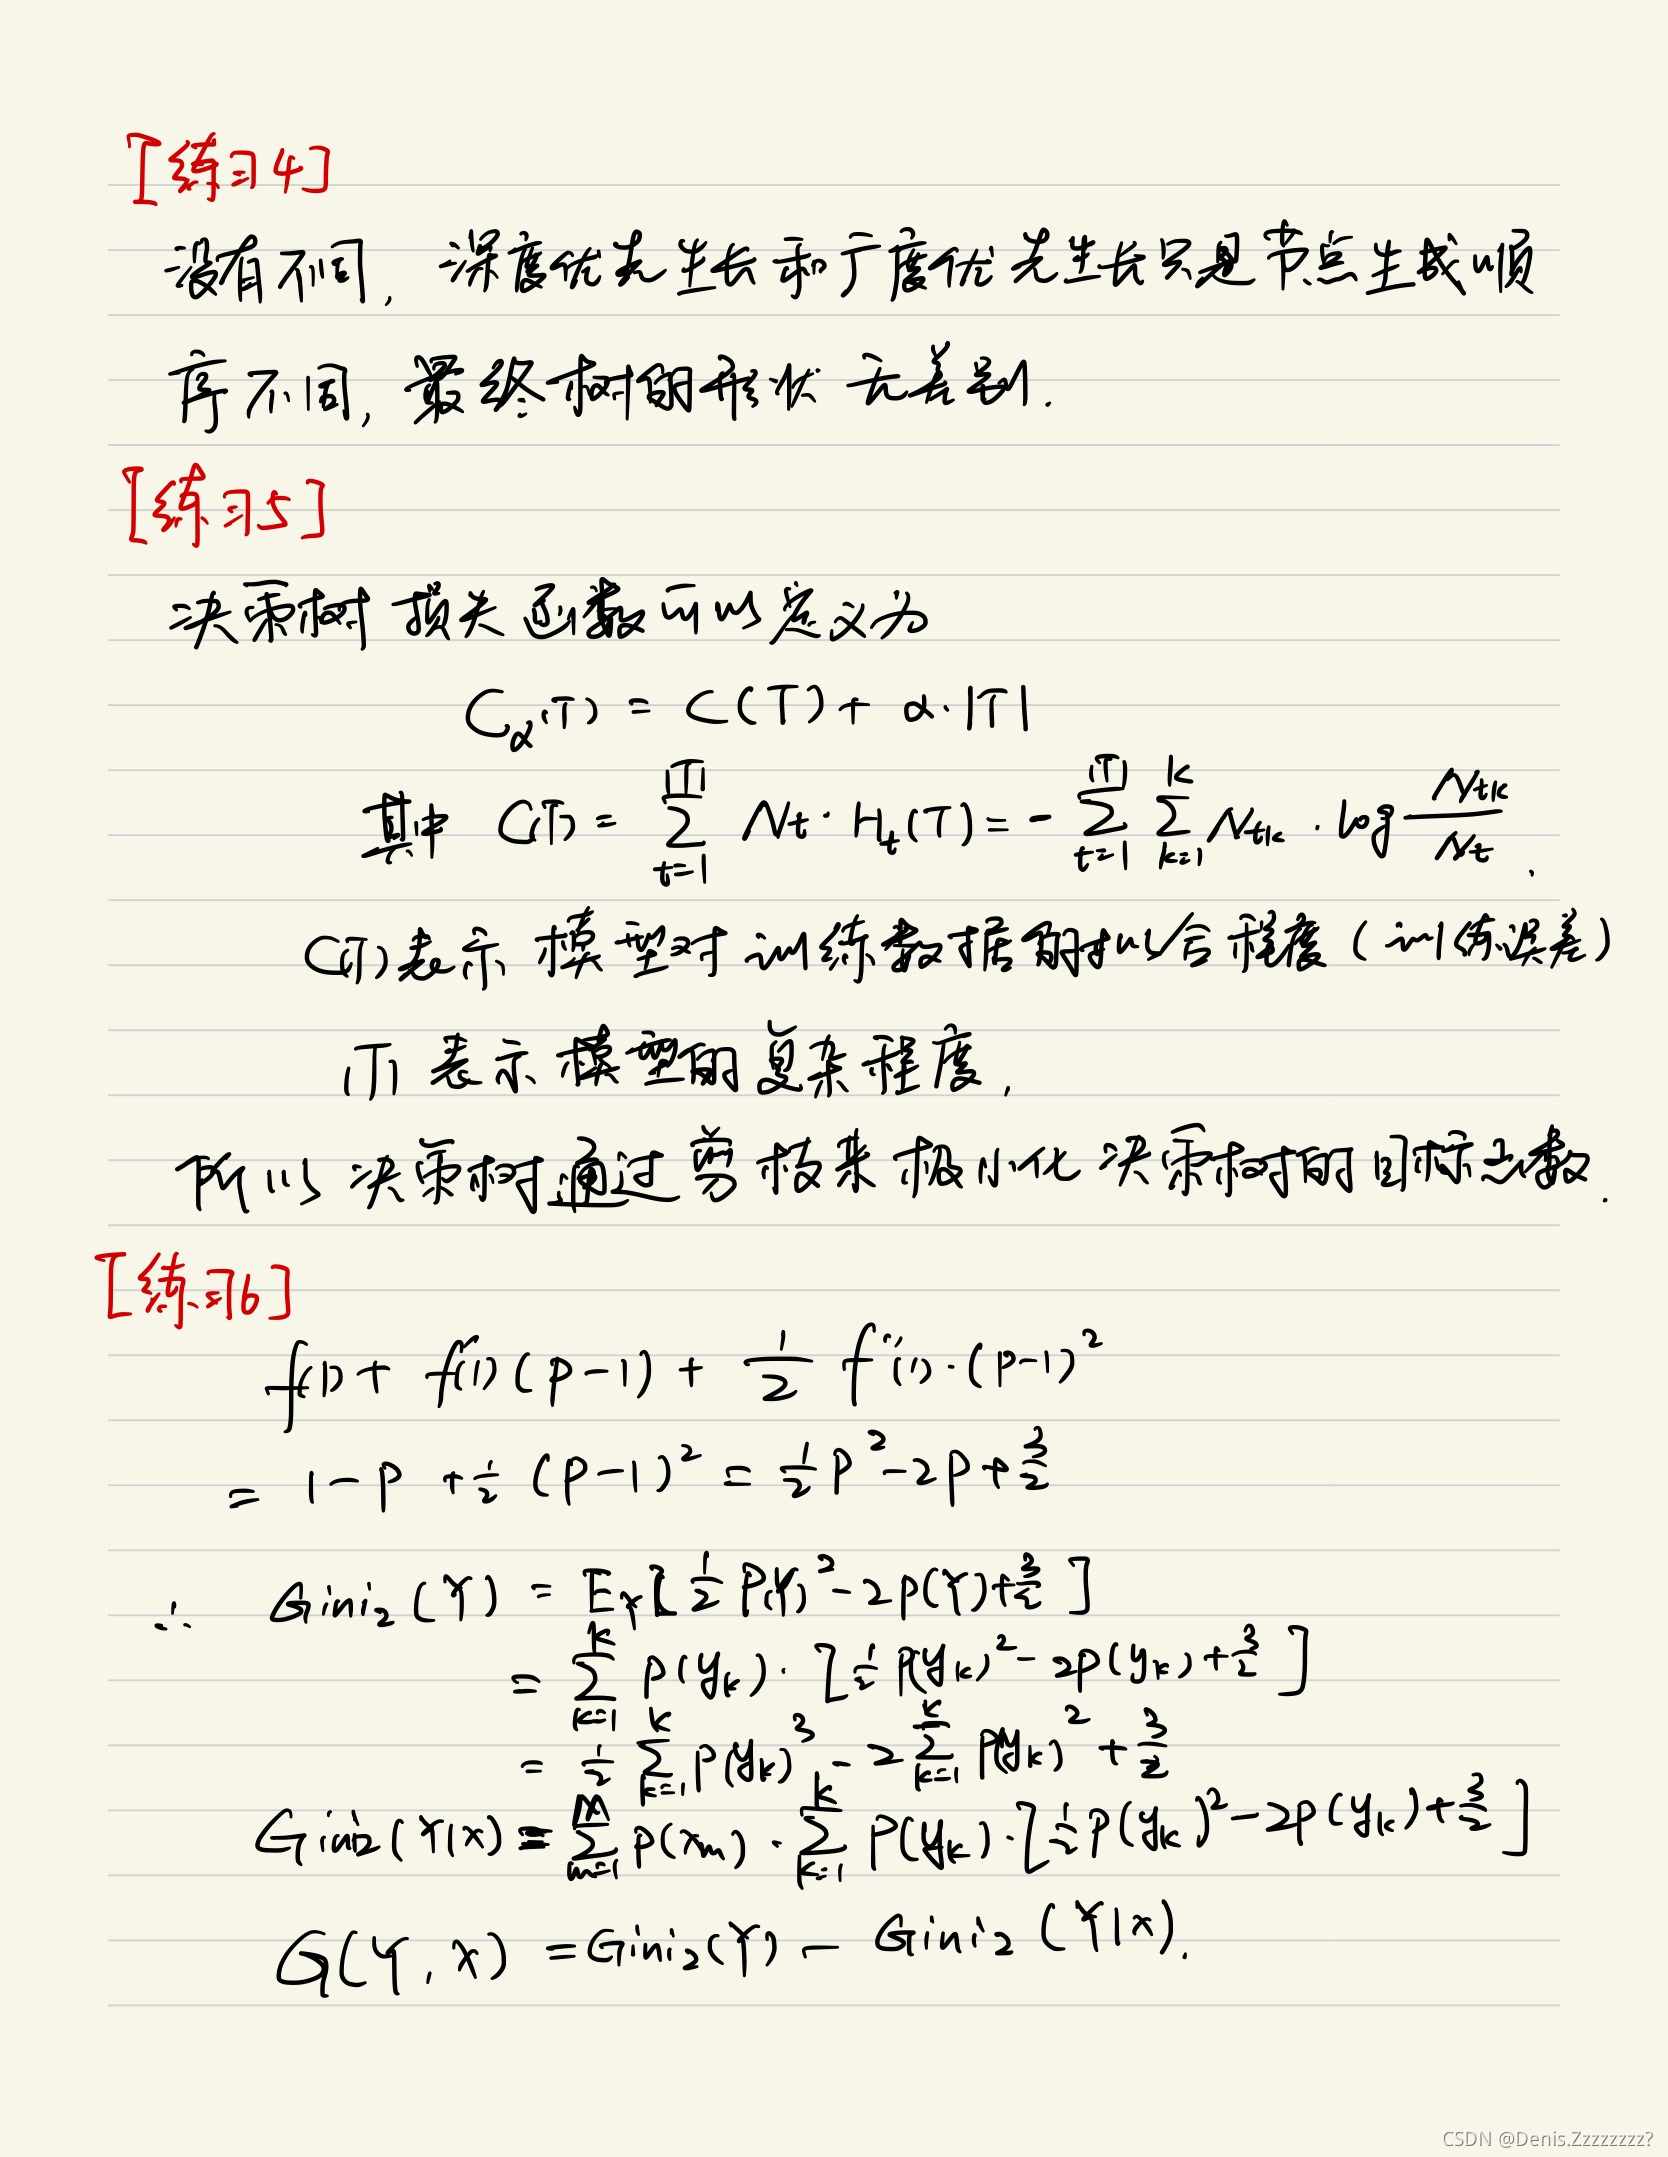 [练习4]
没有不同，深度优先生长和广度优先生长只是节点生成顺
序不同，最终树的形状无差别.
[练习5]
决策树损失函数可以定义为
C_α(T) = C(T) + α·|T|
其中 C(T) = ∑_{t=1}^{|T|} N_t · H_t(T) = - ∑_{t=1}^{|T|} ∑_{k=1}^{K} N_{tk} · log N_{tk}/N_t .
C(T)表示模型对训练数据的拟合程度（训练误差）
|T| 表示模型的复杂程度,
所以决策树通过剪枝来极小化决策树的目标函数.
[练习6]
f(1) + f'(1)(p-1) + 1/2 f''(1)·(p-1)²
= 1-p + 1/2 (p-1)² = 1/2 p² - 2p + 3/2
∴ Gini₂(Y) = E_Y[1/2 P(Y)² - 2p(Y) + 3/2]
= ∑_{k=1}^{K} p(y_k)·[1/2 p(y_k)² - 2p(y_k) + 3/2]
= 1/2 ∑_{k=1}^{K} p(y_k)³ - 2∑_{k=1}^{K} p(y_k)² + 3/2
Gini₂(Y|X) = ∑_{m=1}^{M} p(x_m)·∑_{k=1}^{K} p(y_k)·[1/2 p(y_k)² - 2p(y_k) + 3/2]
G(Y, X) = Gini₂(Y) - Gini₂(Y|X).
CSDN @Denis.Zzzzzzzz?